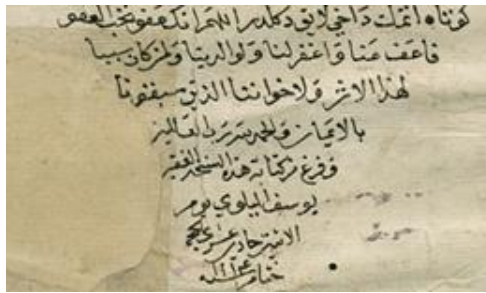 اللهم انك عفو تحب العفو
فاعف عنا واغفر لنا ولوالدينا ولمن كان سببا
لهذا الاثر ولاخواننا الذين سبقونا
بالايمان والحمد لله رب العالمين
وفرغ من كتابة هذه النسخة الفقير
يوسف البيلوي يوم
الاثنين حادي عشري
ختام